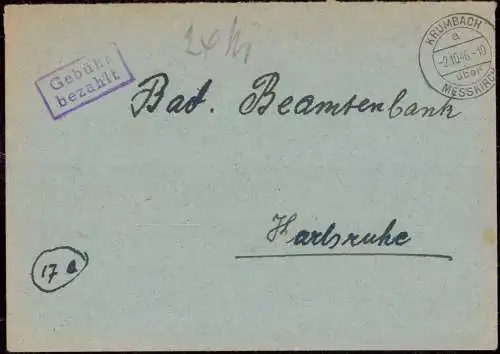 24 Pf
KRUMBACH
a
-2.10.46.-10
über
MESSKIRCH
Gebühr
bezahlt
Bad. Beamtenbank
Karlsruhe
17 a